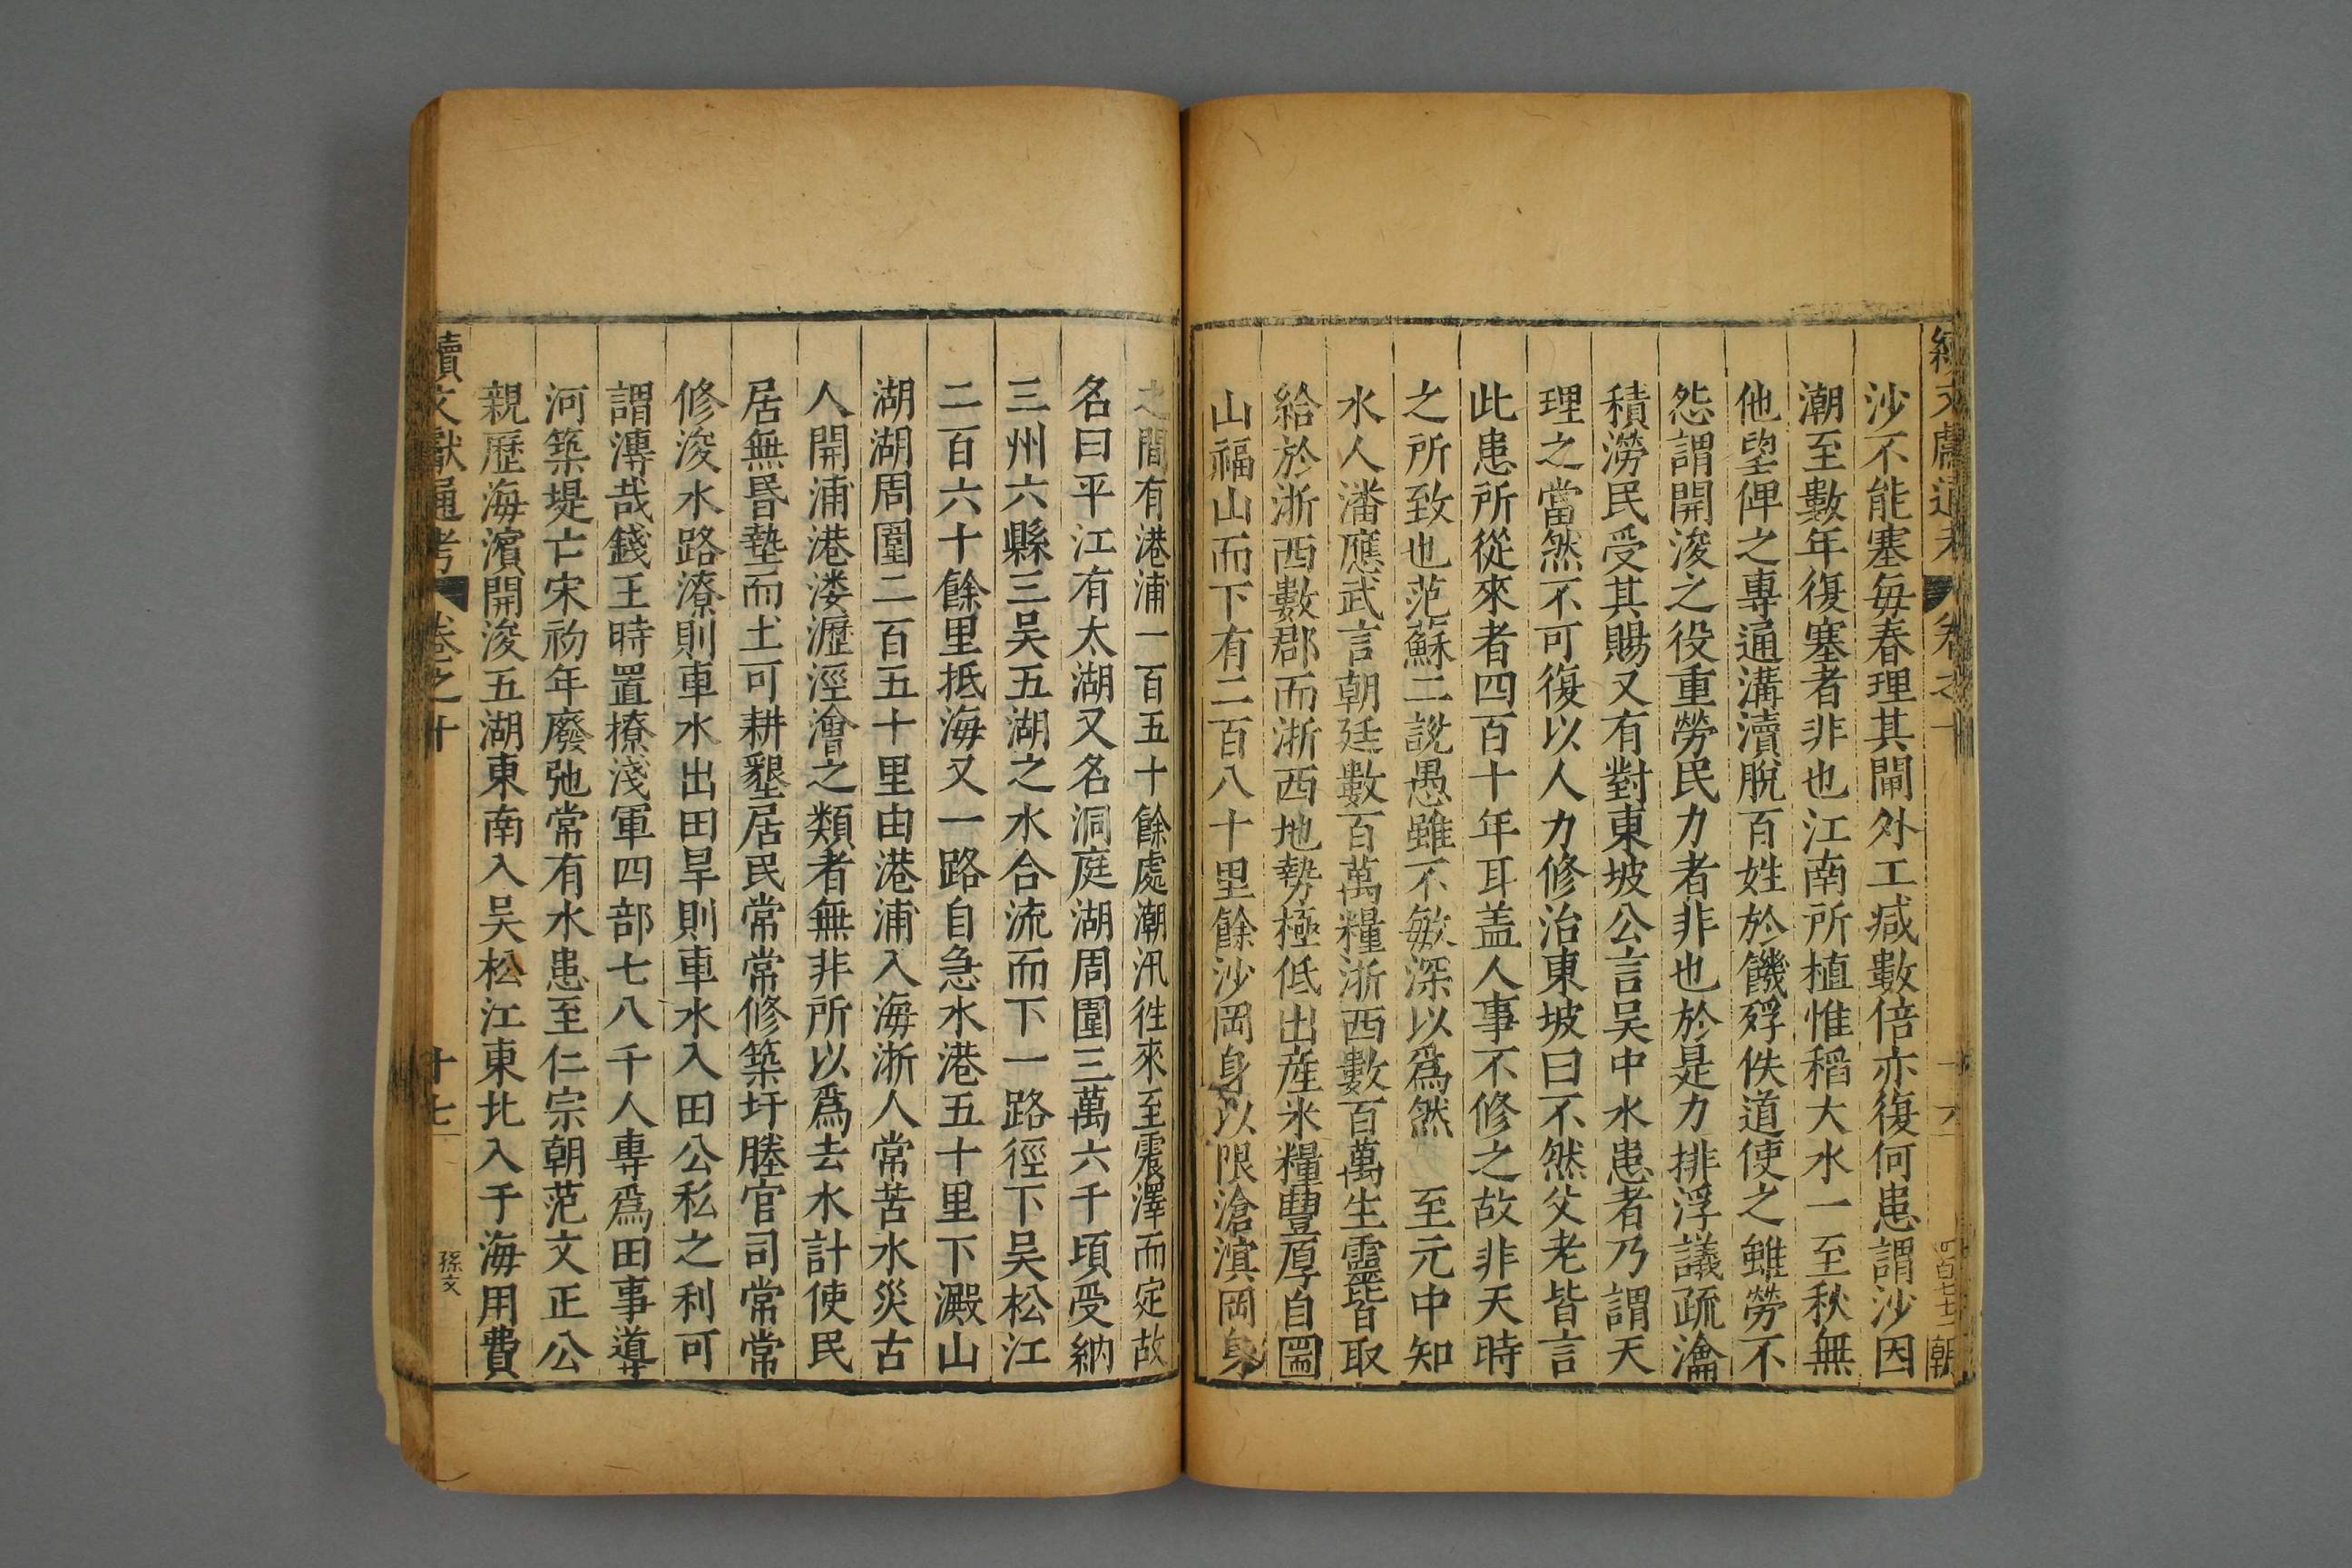 續文獻通考 卷之十 十六 四百七十二 朝
沙不能塞每春理其閘外工減數倍亦復何患謂沙因
潮至數年復塞者非也江南所植惟稻大水一至秋無
他望俾之專通溝瀆脫百姓於饑殍佚道使之雖勞不
怨謂開浚之役重勞民力者非也於是力排浮議疏瀹
積澇民受其賜又有對東坡公言吳中水患者乃謂天
理之當然不可復以人力修治東坡曰不然父老皆言
此患所從來者四百十年耳盖人事不修之故非天時
之所致也范蘇二說愚雖不敏深以爲然 至元中知
水人潘應武言朝廷數百萬糧浙西數百萬生靈皆取
給於浙西數郡而浙西地勢極低出産米糧豐厚自圌
山福山而下有二百八十里餘沙岡身以限滄溟岡身
之間有港浦一百五十餘處潮汛徃來至震澤而定故
名曰平江有太湖又名洞庭湖周圍三萬六千頃受納
三州六縣三吳五湖之水合流而下一路徑下吳松江
二百六十餘里抵海又一路自急水港五十里下澱山
湖湖周圍二百五十里由港浦入海浙人常苦水災古
人開浦港漊瀝涇澮之類者無非所以爲去水計使民
居無昏墊而土可耕墾居民常常修築圩塍官司常常
修浚水路潦則車水出田旱則車水入田公私之利可
謂溥哉錢王時置撩淺軍四部七八千人專爲田事導
河築堤亡宋初年廢弛常有水患至仁宗朝范文正公
親歷海濱開浚五湖東南入吳松江東北入于海用費
續文獻通考 卷之十 十七 孫文